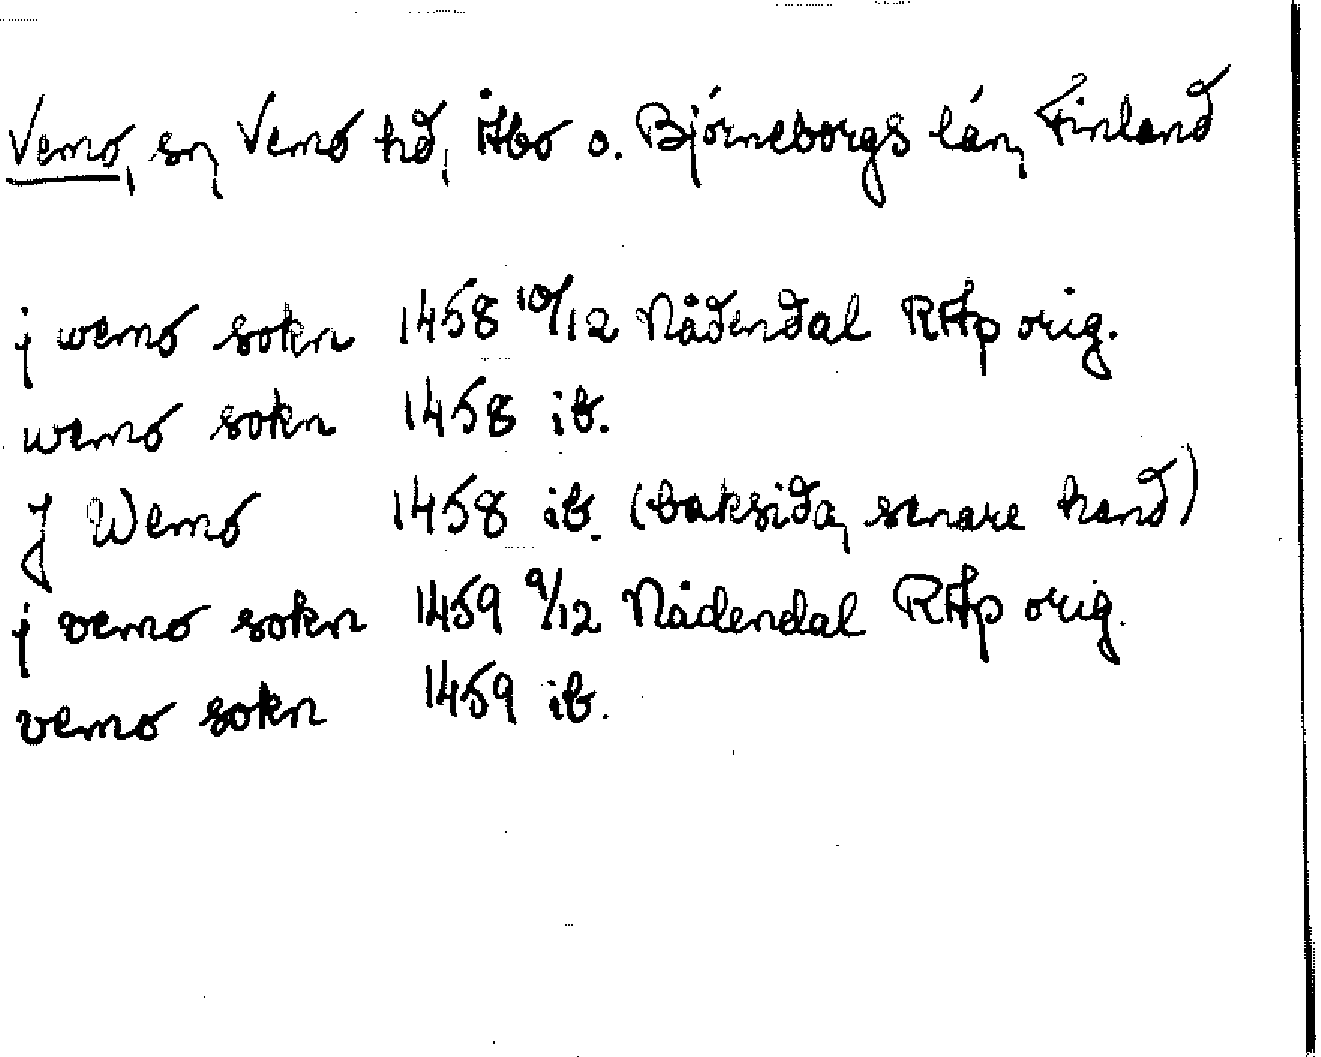 Vemo, sn, Vemo hd, Åbo o. Björneborgs län, Finland
j wemo sokn 1458 10/12 Nådendal RAp orig.
wemo sokn 1458 ib.
J Wemo 1458 ib. (baksida, senare hand)
j vemo sokn 1459 9/12 Nådendal RAp orig.
vemo sokn 1459 ib.